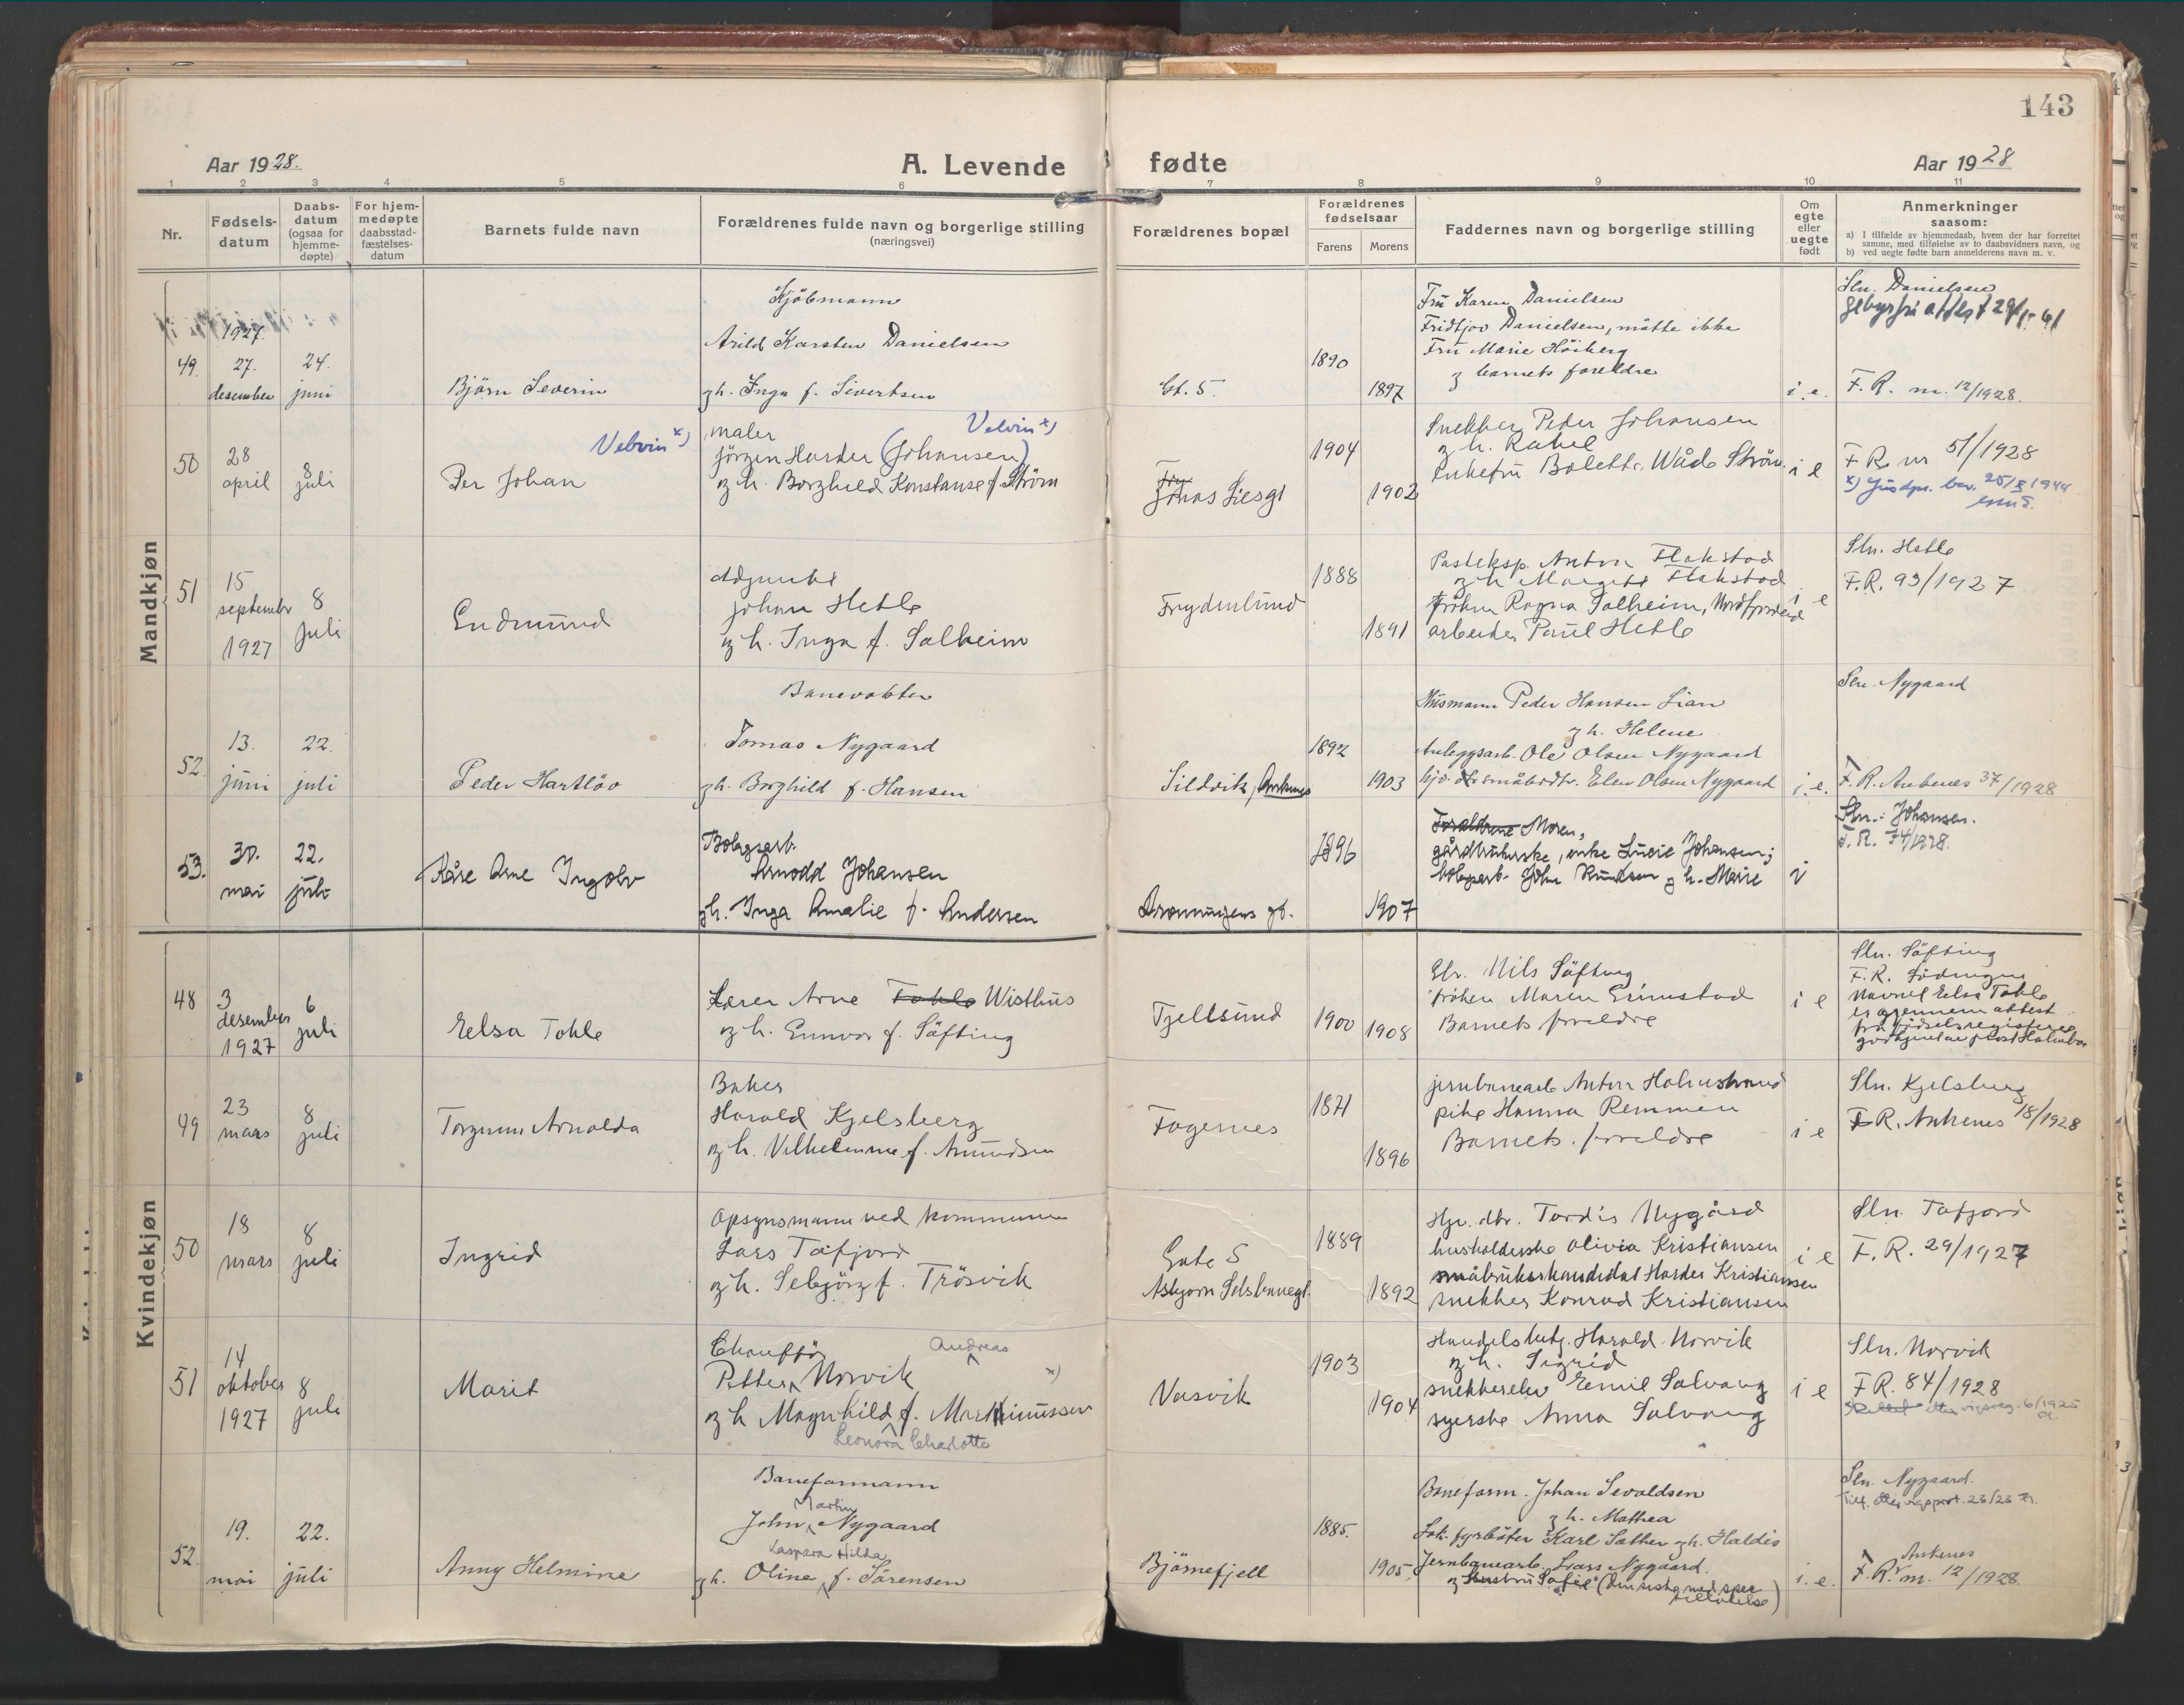 143
Aar 1928.
A. Levende fødte
Aar 1928
1 2 3 4 5 6 7 8 9 10 11
Nr.
Fødsels-
datum
Daabs-
datum
(ogsaa for
hjemme-
døpte)
For hjem-
medøpte
daabsstad-
fæstelses-
datum
Barnets fulde navn
Forældrenes fulde navn og borgerlige stilling
(næringsvei)
Forældrenes bopæl
Forældrenes
fødselsaar
Farens
Morens
Faddernes navn og borgerlige stilling
Om
egte
eller
uegte
født
Anmerkninger
saasom:
a) I tilfælde av hjemmedaab, hvem der har forrettet
samme, med tilføielse av to daabsvidners navn, og
b) ved uegte fødte barn anmelderens navn m. v.
Mandkjøn
49.
1927.
27.
desember
24.
juni
Björn Severin
Kjöbmann
Arild Karsten Danielsen
og h. Inga f. Sivertsen
Gt. 5.
1890
1897
Fru Karen Danielsen
Fridtjov Danielsen, måtte ikke
Fru Marie Höiberg
og barnets foreldre
i. e.
Sln. Danielsen
F. R. nr. 12/1928.
50
28
april
8
juli
Per Johan
Velvin x)
maler
Velvin x)
Jörgen Harder (Johansen)
og h. Borghild Konstanse f. Ström
1904
1902
Snekker Peder Johansen
og h. Rakel
Enkefru Bolette Wåde Ström
i e
F R. nr 51/1928
51
15
september
1927
8
juli
Gudmund
Adjunkt
Johan Hetle
og h. Inga f. Solheim
Frydenlund
1888
1891
Posteksp. Anton Flakstad
og h Margit Flakstad
Fröken Ragna Solheim, Nordfjordeid
arbeider Paul Hetle
i e
Sln. Hetle
F.R. 93/1927
52.
13.
juni
22.
juli
Peder Hartløv
Banevokter
Tomas Nygaard
og h. Borghild f. Hansen
Sildvik, Ankenes
1892
1903
Husmann Peder Hansen Lian
og h. Helene
Anleggsarb. Ole Olsen Nygaard
småbrdtr. Elen Olsen Nygaard
i. e.
Sln. Nygaard
F. R. Ankenes 37/1928
53.
30.
mai
22.
juli
Kåre Arne Ingolv
Bolagsarb.
Arnodd Johansen
og h. Inga Amalie f. Andersen
Dronningens gt.
1896
1907
Foreldrene Moren,
gårdbrukerske, enke Lucie Johansen;
bolagsarb. John Knudsen og h. Marie
i
Sln.: Johansen.
F. R. 74/1928.
Kvindekjøn
48
3
desember
1927
6
juli
Eelsa Tohle
Lærer Arne Tohle Wisthus
og h. Gunvor f. Säfting
Tjellsund
1900
1908
Nils Säfting
fröken Maren Grimstad
Barnets foreldre
i e
Sln. Säfting
F. R. Lödingen
Navnet Eelsa Tohle
er gjennem attest
fra födselsregisteret
49
23
mars
8
juli
Torgunn Arnolda
Baker
Harald Kjelsberg
og h. Vilhelmine f. Amundsen
Fagernes
1871
1896
jernbanearb Anton Holmstrand
pike Hanna Remmen
Barnets foreldre
i e
Sln. Kjelsberg
F R. Ankenes 18/1928
50
18
mars
8
juli
Ingrid
Opsynsmann ved kommunen
Lars Tafjord
og h. Sebjörg f. Trösvik
Gate 5
1889
1892
Hjv. dtr. Tordis Nygård
husholderske Olivia Kristiansen
småbrukerkandidat Harder Kristiansen
snekker Konrad Kristiansen
i e
Sln. Tafjord
F. R. 29/1927
51
14
oktober
1927
8
juli
Marit
Chaufför
Andreas
Petter Norvik x)
og h Magnhild f. Martinussen
Leonora Charlotte
Vasvik
1903
1904
Handelsbetj. Harald Norvik
og h. Sigrid
snekkerelev Eemil Solvang
syerske Anna Solvang
i e
Sln. Norvik
F R. 84/1928
52.
19.
mai
22.
juli
Anny Helmine
Baneformann
Martin
John Nygaard
Kaspara Hilda
og h. Oline f. Sörensen
Björnefjell
1885.
1905.
Baneform. Johan Sevaldsen
og h. Mathea
Lok. fyrböter Karl Sæther og h. Haldis
Jernbanearb. Lars Nygaard.
i. e.
Sln. Nygaard.
Ankenes
F. R. nr. 12/1928.